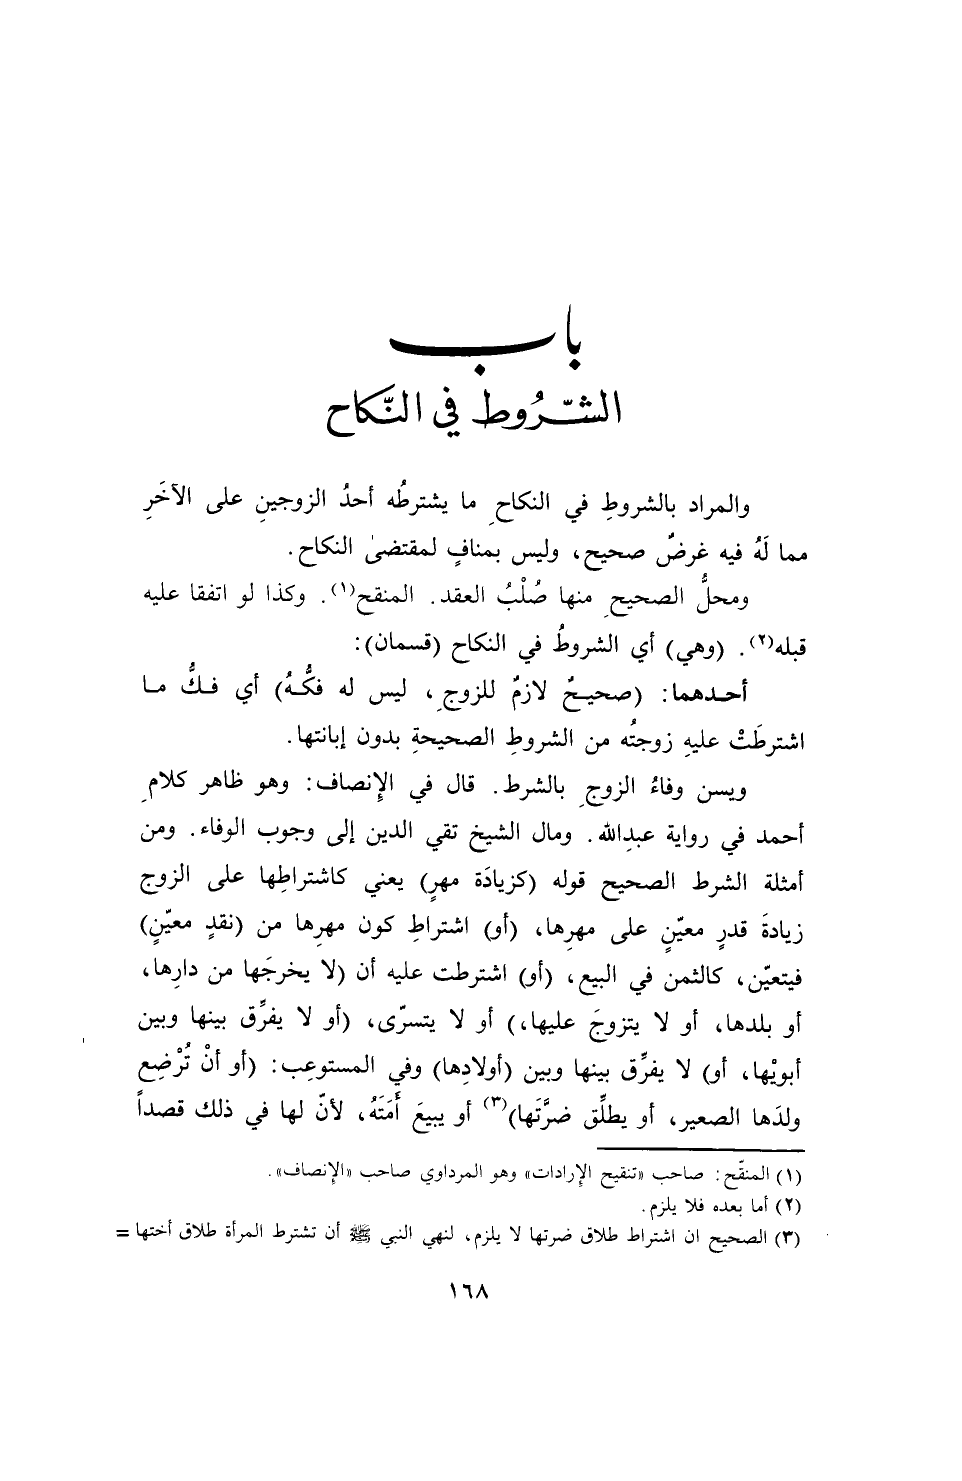 باب
الشّروط في النّكاح
والمراد بالشروطِ في النكاحِ ما يشترطُه أحدُ الزوجينِ على الآخَرِ
مما لَهُ فيه غرضٌ صحيح، وليس بمنافٍ لمقتضىٰ النكاح.
ومحلُّ الصحيحِ منها صُلْبُ العقد. المنقح(١). وكذا لو اتفقا عليه
قبله(٢). (وهي) أي الشروطُ في النكاح (قسمان):
أحدهما: (صحيحٌ لازمٌ للزوجِ، ليس له فكُّهُ) أي فكُّ ما
اشترطَتْ عليهِ زوجتُه من الشروطِ الصحيحةِ بدون إبانتها.
ويسن وفاءُ الزوجِ بالشرط. قال في الإنصاف: وهو ظاهر كلامِ
أحمد في رواية عبدِالله. ومال الشيخ تقي الدين إلى وجوب الوفاء. ومن
أمثلة الشرط الصحيح قوله (كزيادَة مهرٍ) يعني كاشتراطِها على الزوج
زيادةَ قدرٍ معيّنٍ على مهرِها، (أو) اشتراطِ كون مهرِها من (نقدٍ معيّنٍ)
فيتعيّن، كالثمن في البيع، (أو) اشترطت عليه أن (لا يخرجَها من دارِها،
أو بلدها، أو لا يتزوجَ عليها،) أو لا يتسرّى، (أو لا يفرِّق بينها وبين
أبويْها، أو) لا يفرِّق بينها وبين (أولادِها) وفي المستوعِب: (أو أنْ تُرْضِع
ولدَها الصعير، أو يطلِّق ضرَّتَها)(٣) أو يبيعَ أَمَتَهُ، لأنّ لها في ذلك قصداً
(١) المنقّح: صاحب «تنقيح الإرادات» وهو المرداوي صاحب «الإنصاف».
(٢) أما بعده فلا يلزم.
(٣) الصحيح ان اشتراط طلاق ضرتها لا يلزم، لنهي النبي ﷺ أن تشترط المرأة طلاق أختها =
١٦٨